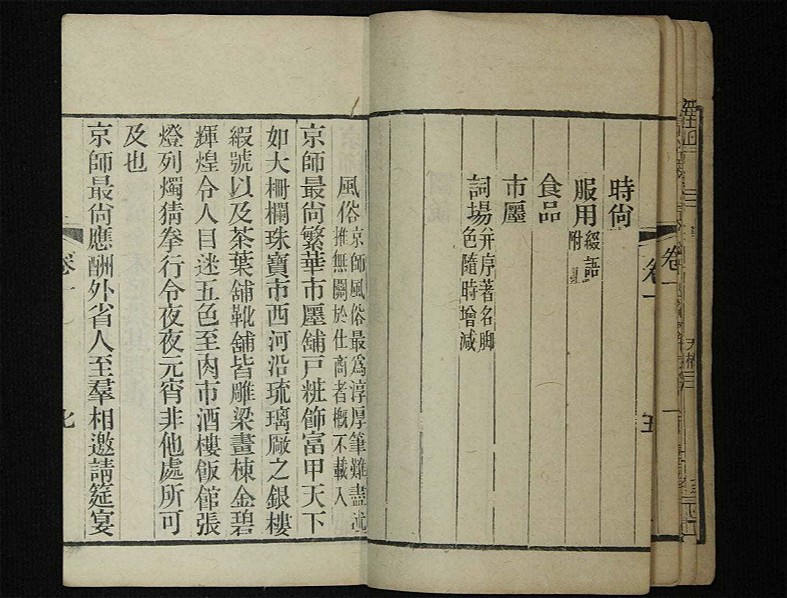 卷一
卷一
時尚
服用附綴語
食品
市廛
詞場并序著名脚
色隨時增減
風俗京師風俗最爲淳厚筆難盡述
推無關於仕商者概不載入
京師最尙繁華市廛舖戶粧飾富甲天下
如大柵欄珠寶市西河沿琉璃廠之銀樓
緞號以及茶葉舖靴舖皆雕梁畫棟金碧
輝煌令人目迷五色至肉市酒樓飯館張
燈列燭猜拳行令夜夜元宵非他處所可
及也
京師最尙應酬外省人至羣相邀請筵宴